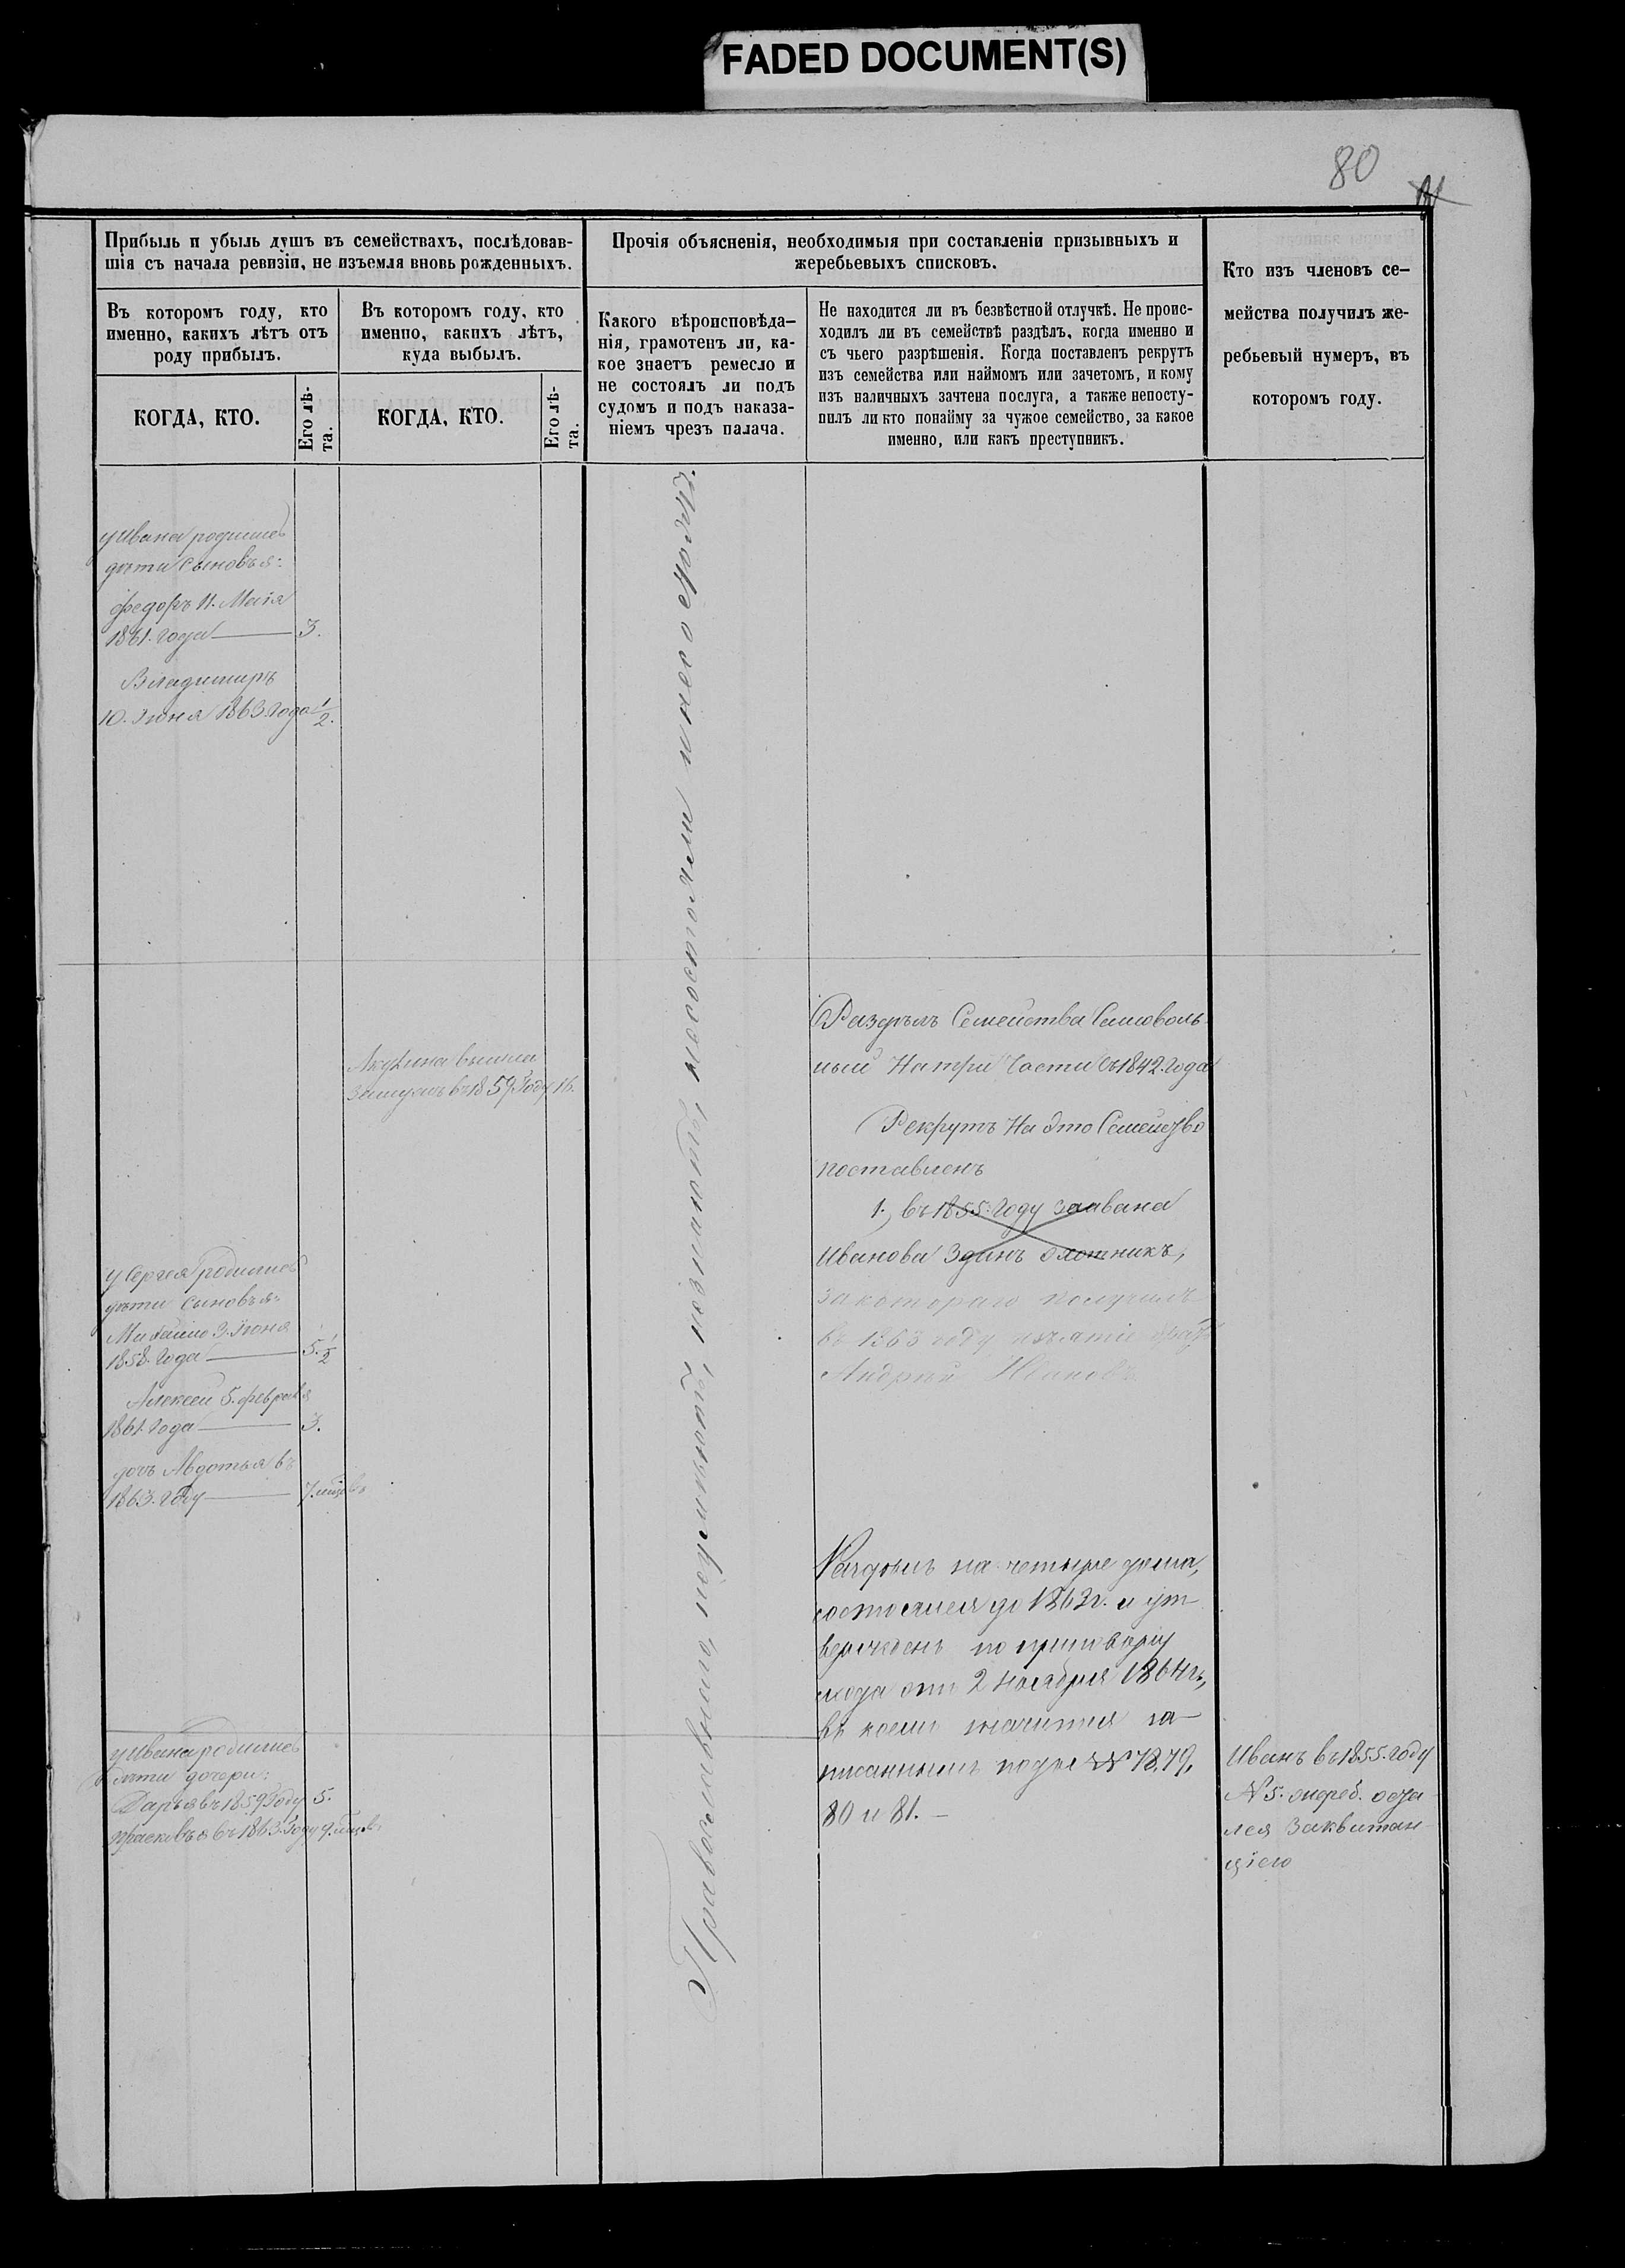 FADED DOCUMENT(S)
80
Прибыль и убыль душъ въ семействахъ, послѣдовав-
шія съ начала ревизіи, не изъемля вновь рожденныхъ.
Въ которомъ году, кто
именно, какихъ лѣтъ отъ
роду прибылъ.
КОГДА, КТО.
Его лѣ-
та.
Въ которомъ году, кто
именно, какихъ лѣтъ,
куда выбылъ.
КОГДА, КТО.
Его лѣ-
та.
Прочія объясненія, необходимыя при составленіи призывныхъ и
жеребьевыхъ списковъ.
Какого вѣроисповѣда-
нія, грамотенъ ли, ка-
кое знаетъ ремесло и
не состоялъ ли подъ
судомъ и подъ наказа-
ніемъ чрезъ палача.
Не находится ли въ безвѣстной отлучкѣ. Не проис-
ходилъ ли въ семействѣ раздѣлъ, когда именно и
съ чьего разрѣшенія. Когда поставленъ рекрутъ
изъ семейства или наймомъ или зачетомъ, и кому
изъ наличныхъ зачтена послуга, а также непосту-
пилъ ли кто понайму за чужое семейство, за какое
именно, или какъ преступникъ.
Кто изъ членовъ се-
мейства получилъ же-
ребьевый нумеръ, въ
которомъ году.
у Ивана родились
дѣти сыновья:
Федоръ 11. Маія
1861. года — 3.
Владимиръ
10. Іюня 1863. года 1/2.
Акулина вышла
замужъ въ 1859. Году 16.
у Сергея родились
дѣти сыновья:
Михайло 3. Іюня
1858. года — 5 1/2
Алексей 5. февраля
1861. года — 3.
дочь Авдотья въ
1863. году — 7. мѣс
у Ивана родились
дѣти дочери:
Дарья въ 1859 Году 5.
Прасковья въ 1863. Году
Православные, неумѣютъ, незнаютъ, несостояли
Раздѣлъ Семейства Самоволь-
ный На три Части съ 1842. года
Рекрутъ На это Семейство
поставленъ
1., въ 1855. году за Ивана
Иванова Здинъ охотникъ,
за котораго получилъ
въ 1863 году
Андрей Ивановъ
Раздѣлъ на четыре дома,
состоялся до 1863 г. и ут
вержденъ по приговору
схода отъ 2 Ноября 1864 г.,
въ коемъ значится за-
писаннымъ подъ №№ 78, 79,
80 и 81. —
Иванъ въ 1855. году
№ 5. жреб. оста
лся за квитан
ціею